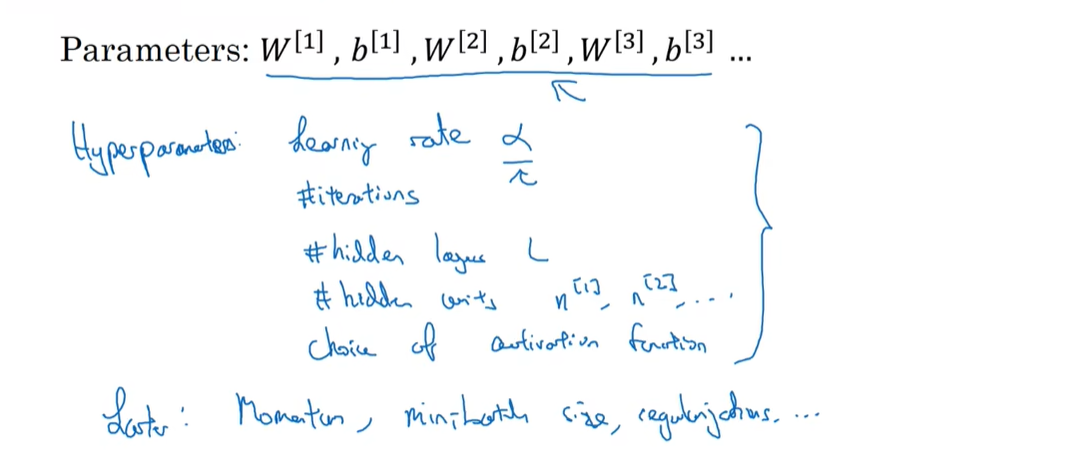 Parameters: W[1] , b[1] , W[2] , b[2] , W[3] , b[3] ...
Hyperparameters: Learning rate α
#iterations
#hidden layers L
# hidden units n[1], n[2], ....
choice of activation function
Later: Momentum, mini-batch size, regularizations. ...